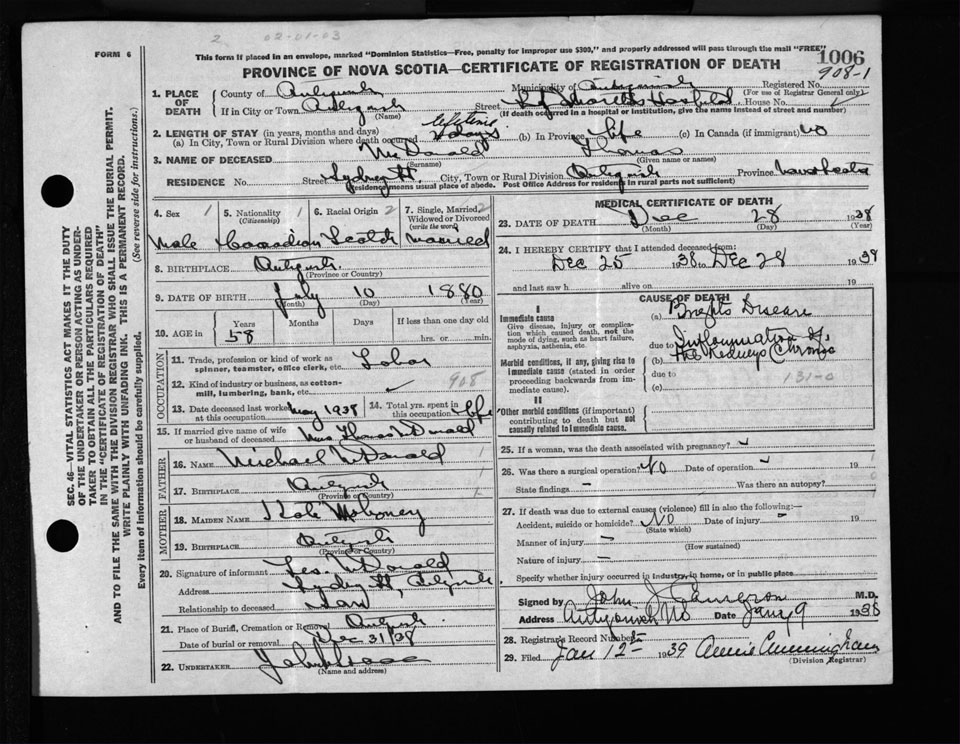 2 02-01-03
FORM 6
This form if placed in an envelope, marked "Dominion Statistics—Free, penalty for improper use $300," and properly addressed will pass through the mail "FREE"
1006
908-1
PROVINCE OF NOVA SCOTIA—CERTIFICATE OF REGISTRATION OF DEATH
1. PLACE OF DEATH
County of Antigonish Municipality of Antigonish Registered No.
(For use of Registrar General only)
If in City or Town Antigonish Street St Martha's Hospital House No.
(Name) (If death occurred in a hospital or institution, give the name instead of street and number)
2. LENGTH OF STAY (in years, months and days) lifetime
(a) In City, Town or Rural Division where death occurred days (b) In Province life (c) In Canada (if immigrant) no
3. NAME OF DECEASED McDonald Thomas
(Surname) (Given name or names)
RESIDENCE No. Street Sydney St. City, Town or Rural Division Antigonish Province Nova Scotia
(Residency means usual place of abode. Post Office Address for residents in rural parts not sufficient)
4. Sex 1 5. Nationality 1 (Citizenship) 6. Racial Origin 2 7. Single, Married, Widowed or Divorced (write the word) 2
Male Canadian Scotch Married
8. BIRTHPLACE Antigonish
(Province or Country)
9. DATE OF BIRTH July 10 1880
(Month) (Day) (Year)
10. AGE in Years Months Days If less than one day old
58 hrs. or min.
OCCUPATION
11. Trade, profession or kind of work as spinner, teamster, office clerk, etc. Labor
12. Kind of industry or business, as cotton-mill, lumbering, bank, etc. ✓ 908
13. Date deceased last worked at this occupation May 1938 14. Total yrs. spent in this occupation life
15. If married give name of wife or husband of deceased Mrs Thomas McDonald
FATHER
16. NAME Michael McDonald
17. BIRTHPLACE Antigonish
(Province or Country)
MOTHER
18. MAIDEN NAME Kate Mahoney
19. BIRTHPLACE Antigonish
(Province or Country)
20. Signature of informant McDonald
Address Sydney St, Antigonish
Relationship to deceased
21. Place of Burial, Cremation or Removal Antigonish
Date of burial or removal Dec 31/38
22. UNDERTAKER
(Name and address)
MEDICAL CERTIFICATE OF DEATH
23. DATE OF DEATH Dec 28 1938
(Month) (Day) (Year)
24. I HEREBY CERTIFY that I attended deceased from:
Dec 25 1938 to Dec 28 1938
and last saw h alive on 19
CAUSE OF DEATH
I
Immediate cause (a) Brights Disease
Give disease, injury or complication which caused death, not the mode of dying, such as heart failure, asphyxia, asthenia, etc.
due to Inflammation of
(b) the Kidneys Chronic
Morbid conditions, if any, giving rise to immediate cause (stated in order proceeding backwards from immediate cause).
due to 131-0
(c)
II
Other morbid conditions (if important) contributing to death but not causally related to immediate cause.
25. If a woman, was the death associated with pregnancy?
26. Was there a surgical operation? No Date of operation 19
State findings - Was there an autopsy?
27. If death was due to external causes (violence) fill in also the following:—
Accident, suicide or homicide? No Date of injury - 19
(State which)
Manner of injury -
(How sustained)
Nature of injury -
Specify whether injury occurred in industry, in home, or in public place
Signed by John J Cameron M.D.
Address Antigonish NS Date Jany 9 1938
28. Registrar's Record Number
29. Filed Jan 12th 1939 Annie Cunningham
(Division Registrar)
SEC. 46—VITAL STATISTICS ACT MAKES IT THE DUTY
OF THE UNDERTAKER OR PERSON ACTING AS UNDER-
TAKER TO OBTAIN ALL THE PARTICULARS REQUIRED
IN THE "CERTIFICATE OF REGISTRATION OF DEATH"
AND TO FILE THE SAME WITH THE DIVISION REGISTRAR WHO SHALL ISSUE THE BURIAL PERMIT.
WRITE PLAINLY WITH UNFADING INK. THIS IS A PERMANENT RECORD.
Every item of information should be carefully supplied. (See reverse side for instructions.)